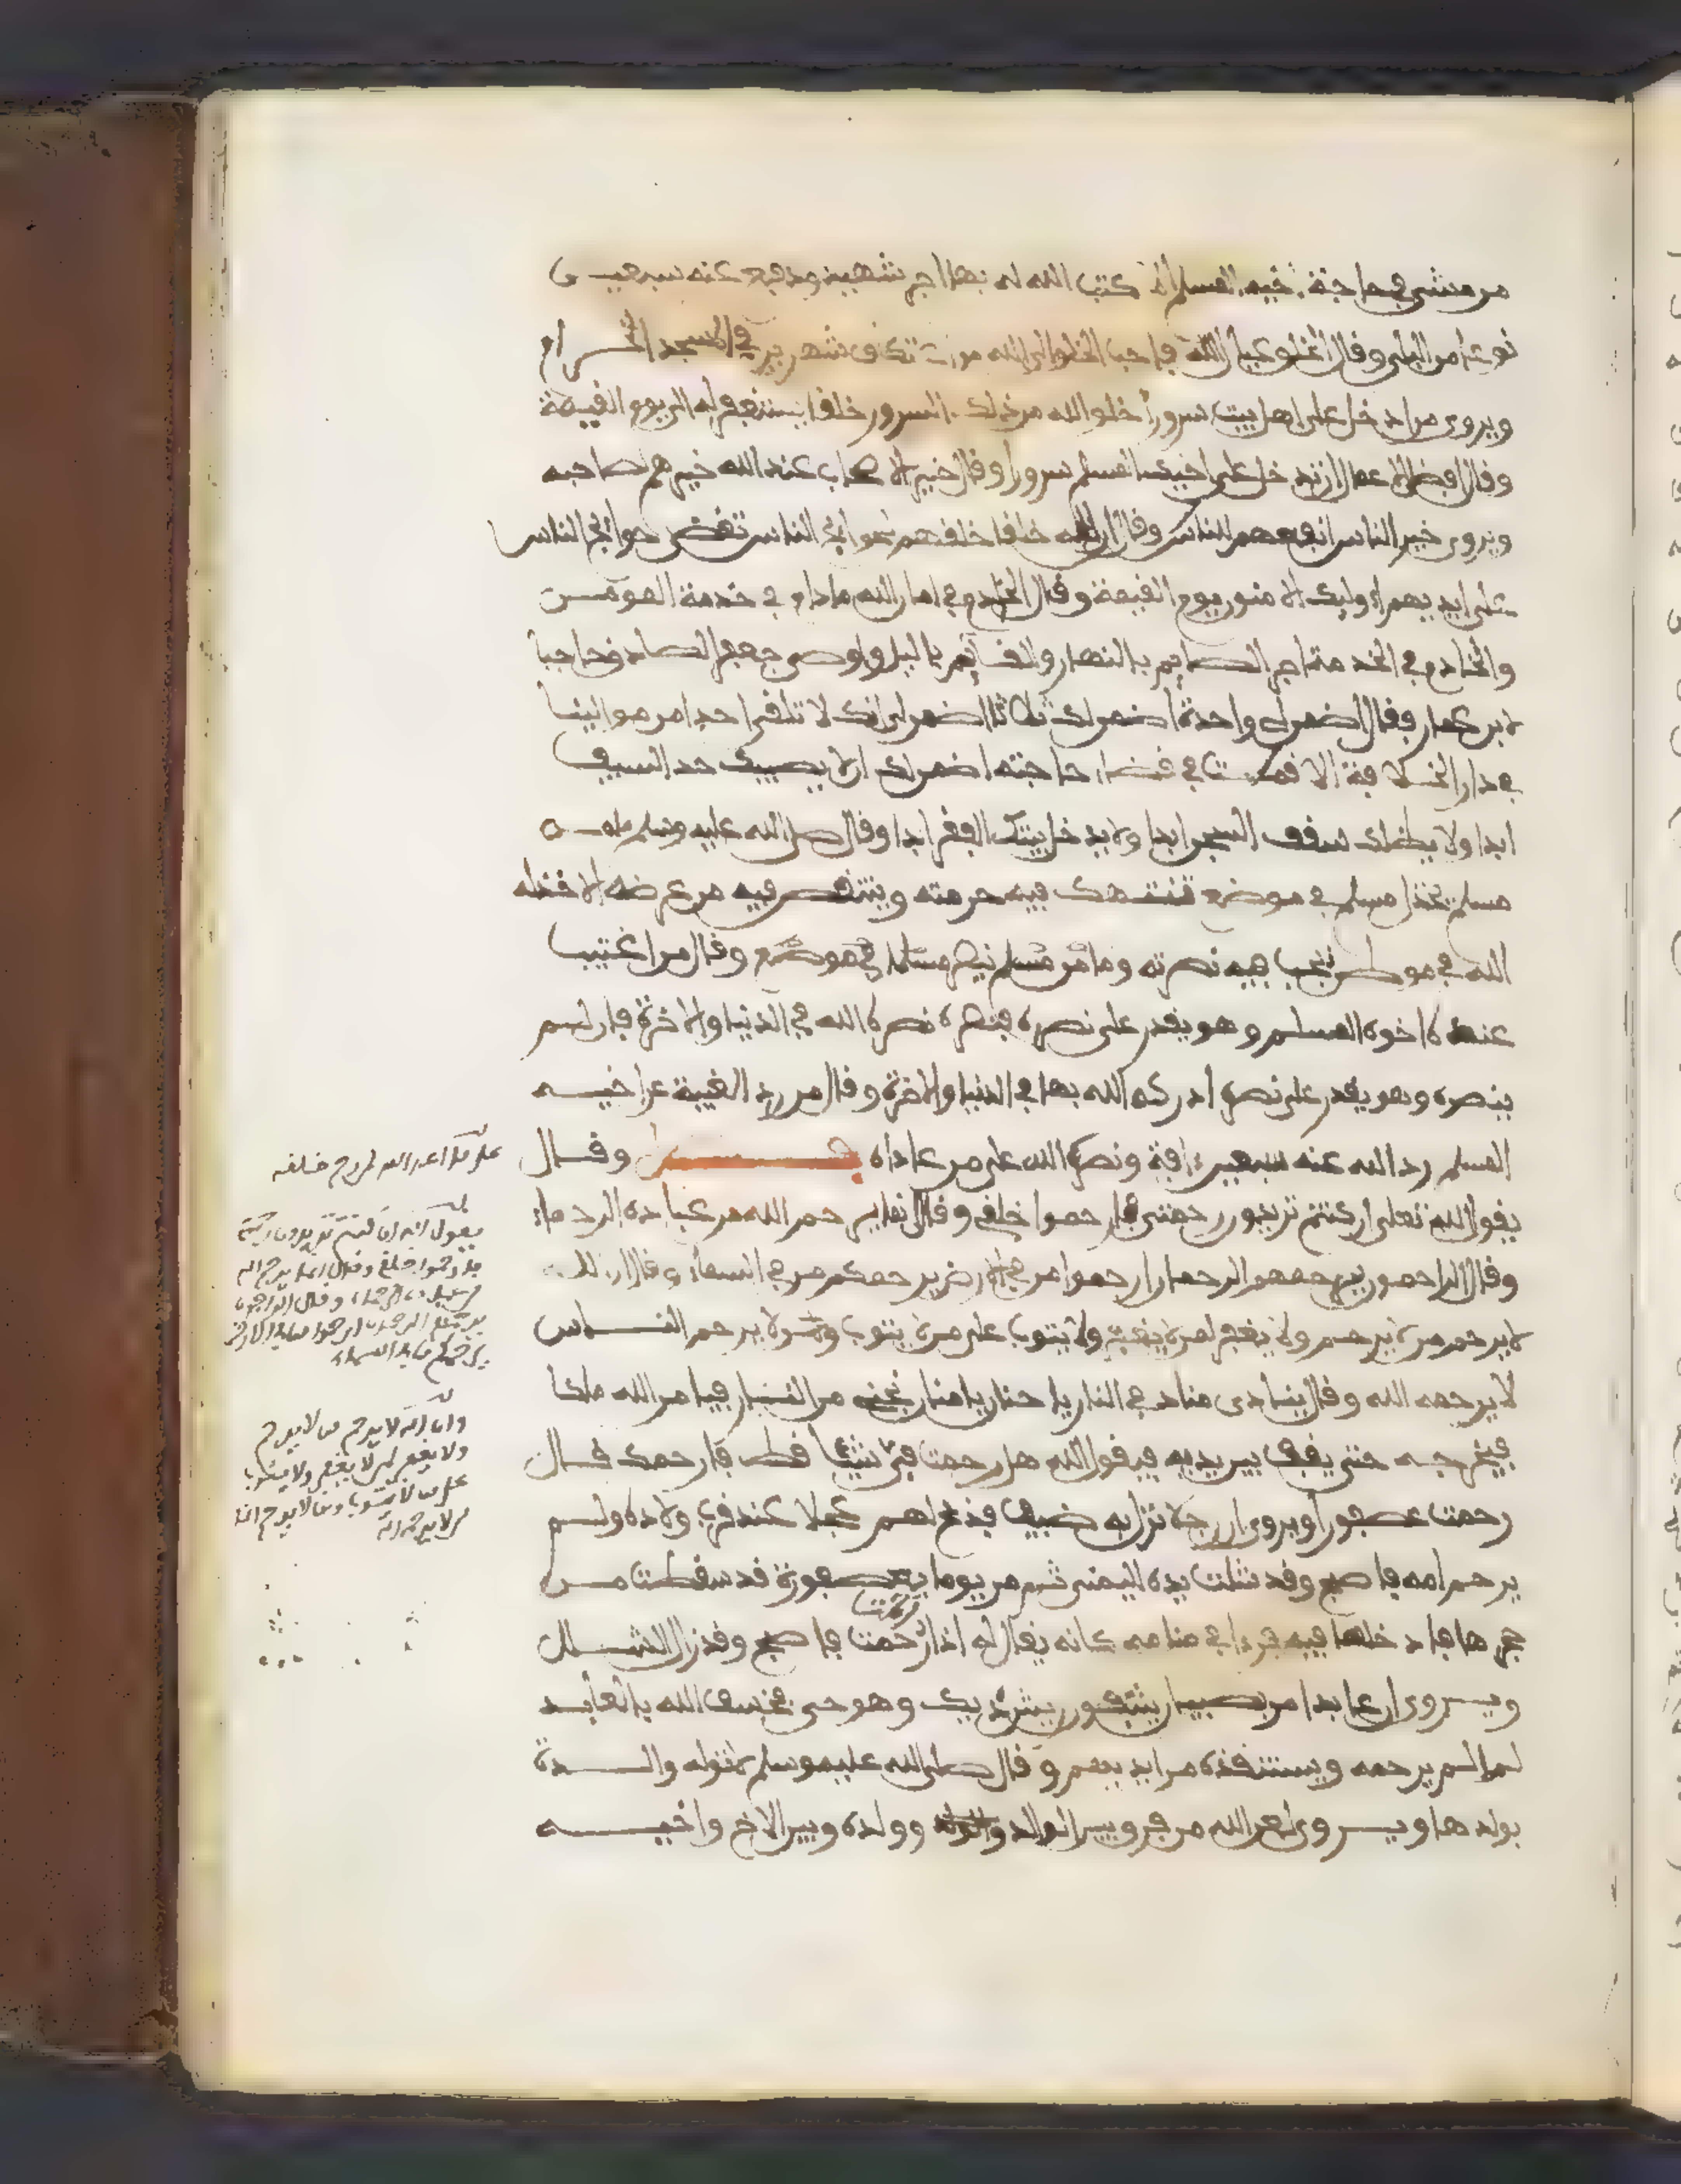 من مشى في حاجة أخيه المسلم كتب الله له بها اجر شهيد ودفع عنه سبعين
نوعا من البلى وقال الخلق عيال الله فاحب الخلق الى الله من تكف شهرين في المسجد الحرام
ويروى من ادخل على اهل بيت سرورا خلق الله من ذلك السرور خلقا يستغفر له الى يوم القيمة
وقال افضل الاعمال ان تدخل على اخيك المسلم سرورا وقال خير الاصحاب عند الله خيرهم لصاحبه
ويروى خير الناس انفعهم للناس وقال ان لله خلقا خلقهم لحوائج الناس تقضى حوائج الناس
على ايديهم اوليك الامنون يوم القيمة وقال الخادم في امان الله مادام في خدمة المومن
والخادم في الخدمة اجر الصايم بالنهار والقايم باليل واوصى جعفر الصادق حاجبا
لابن عمار فقال اضمن لي واحدة اضمن لك ثلاثا اضمن لي انك لا تلقى احدا من موالينا
في دار الخلافة الا قمت في قضاء حاجته اضمن لك ان لا يصيبك حد السيف
ابدا ولا يظلك سقف السجن ابدا ولا يدخل بيتك الفقر ابدا وقال صلى الله عليه وسلم ما من
مسلم يخذل مسلم في موضع تنتهك فيه حرمته وينتقص فيه من عرضه الا خذله
الله في موطن تحب فيه نصرته وما من مسلم نصر مسلما في موضع وقال من اغتيب
عنده اخوه المسلم وهو يقدر على نصره فنصره نصره الله في الدنيا والاخرة فان لم
ينصره وهو يقدر على نصره ادركه الله بها في الدنيا والاخرة وقال من رد الغيبة عن اخيه
المسلم رد الله عنه سبعين افة ونصره الله على من عاداه فصل وقال
يقول الله تعلى ان كنتم تريدون رحمتى فارحموا خلقى وقال انما يرحم الله من عباده الرحماء
وقال الراحمون يرحمهم الرحمان ارحموا من في الارض يرحمكم من في السماء وقال ان الله
لا يرحم من لا يرحم ولا يغفر لمن لا يغفر ولا يتوب على من لا يتوب ومن لا يرحم الناس
لا يرحمه الله وقال ينادى مناد في النار يا حنان يا منان نجنى من النار فيامر الله ملكا
فيخرجه حتى يقف بين يديه فيقول الله هل رحمت شيئا قط فارحمك قال
رحمت عصفورا ويروى ان رجلا نزل به ضيف فذبح لهم عجلا عند قرب ولاده ولم
يرحم امه فاصبح وقد شلت يده اليمنى ثم مر يوما بعصفورة قد سقطت من
جحرها فادخلها فيه فرءا في منامه كانه يقال له اذ رحمت رحمت فاصبح وقد زال الشلل
ويروى ان عابدا مر بصبيان ينتفون ريش ديك وهو حي فخسف الله بالعابد
لما لم يرحمه ويستنقذه من ايديهم وقال صلى الله عليه وسلم لا توله والدة
بولدها ويروى لعن الله من فرق بين الوالد وولده وبين الاخ واخيه
على هذا اعد الله لمن رحم خلقه
يقول الله ان كنتم تريدون رحمتي
فارحموا خلقي وقال انما يرحم الله
من عباده الرحماء وقال الراحمون
يرحمهم الرحمن ارحموا من في الارض
يرحمكم من في السماء
وان الله لا يرحم من لا يرحم
ولا يغفر لمن لا يغفر ولا يتوب
على من لا يتوب ومن لا يرحم الناس
لا يرحمه الله